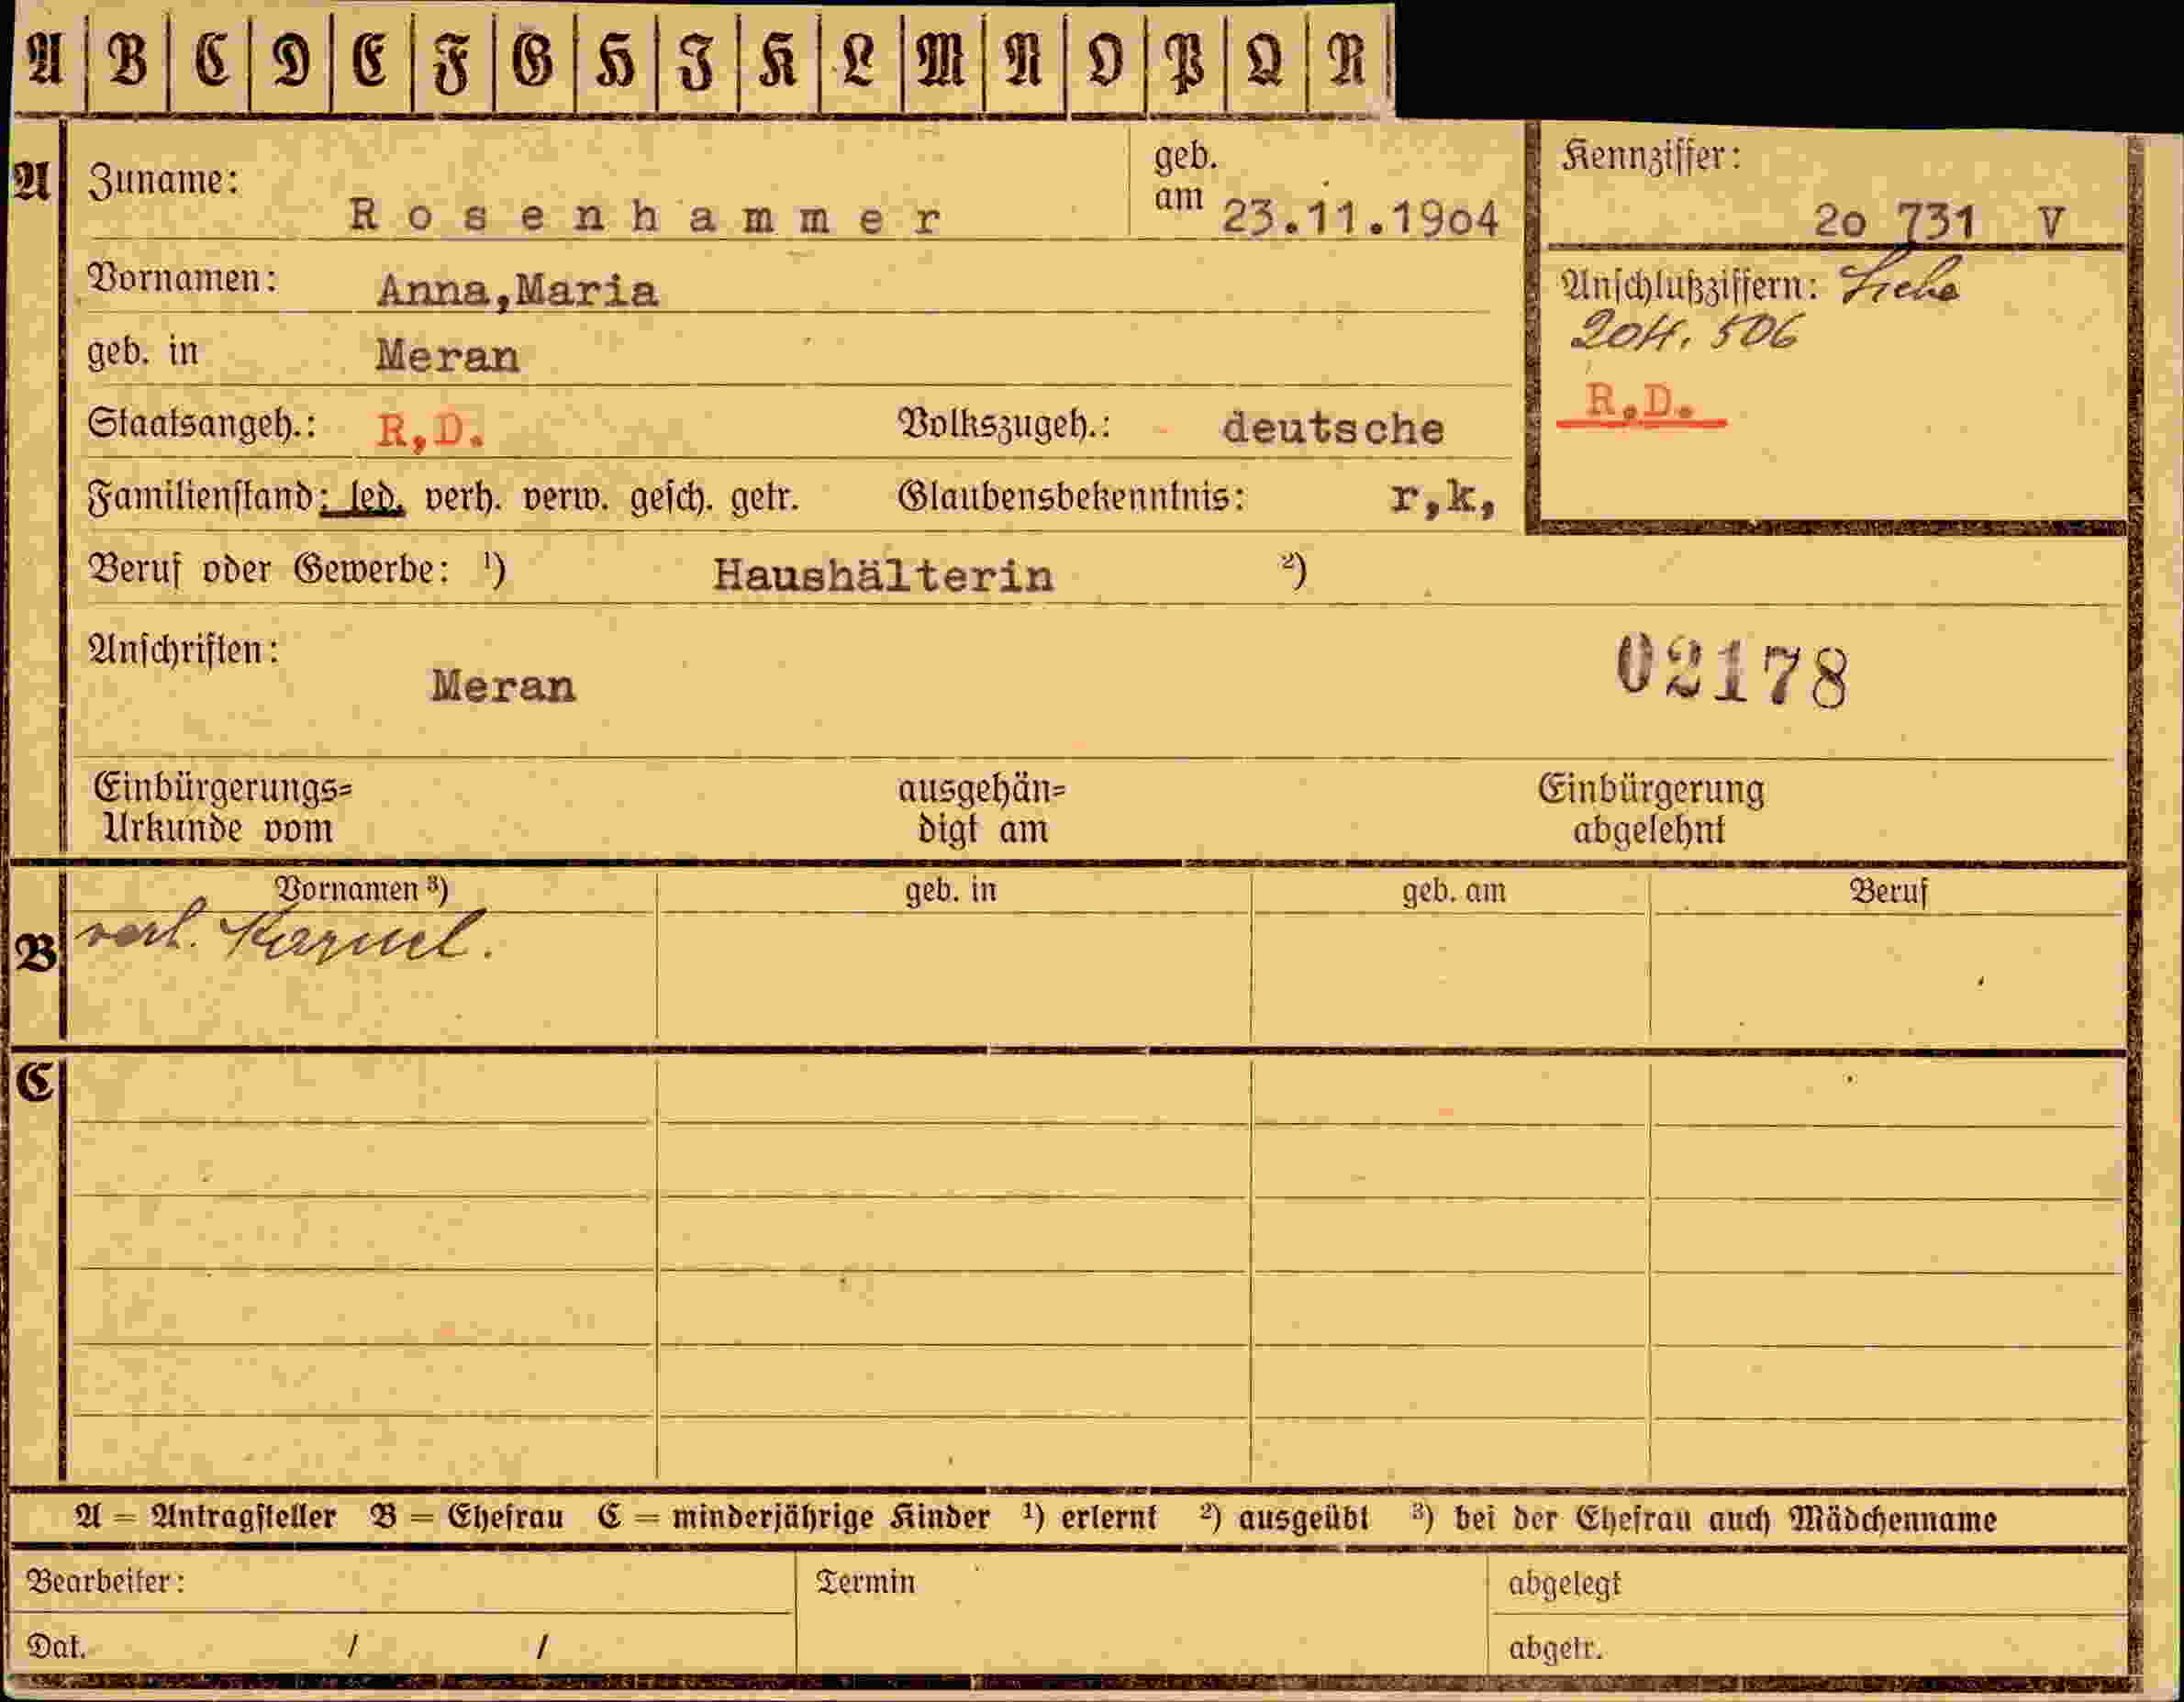 A B C D E F G H I K L M N O P Q R
A Zuname: Rosenhammer geb. am 23.11.19o4
Kennziffer: 2o 731 V
Vornamen: Anna,Maria
Anschlußziffern: Siehe
204. 506
geb. in Meran
R.D.
Staatsangeh.: R,D. Volkszugeh.: deutsche
Familienstand: led. verh. verw. gesch. getr. Glaubensbekenntnis: r,k,
Beruf oder Gewerbe: ¹) Haushälterin ²)
Anschriften: Meran
02178
Einbürgerungs=
Urkunde vom
ausgehän=
digt am
Einbürgerung
abgelehnt
B Vornamen ³) geb. in geb. am Beruf
verh.
C
A = Antragsteller B = Ehefrau C = minderjährige Kinder ¹) erlernt ²) ausgeübt ³) bei der Ehefrau auch Mädchenname
Bearbeiter: Termin abgelegt
Dat. / / abgetr.